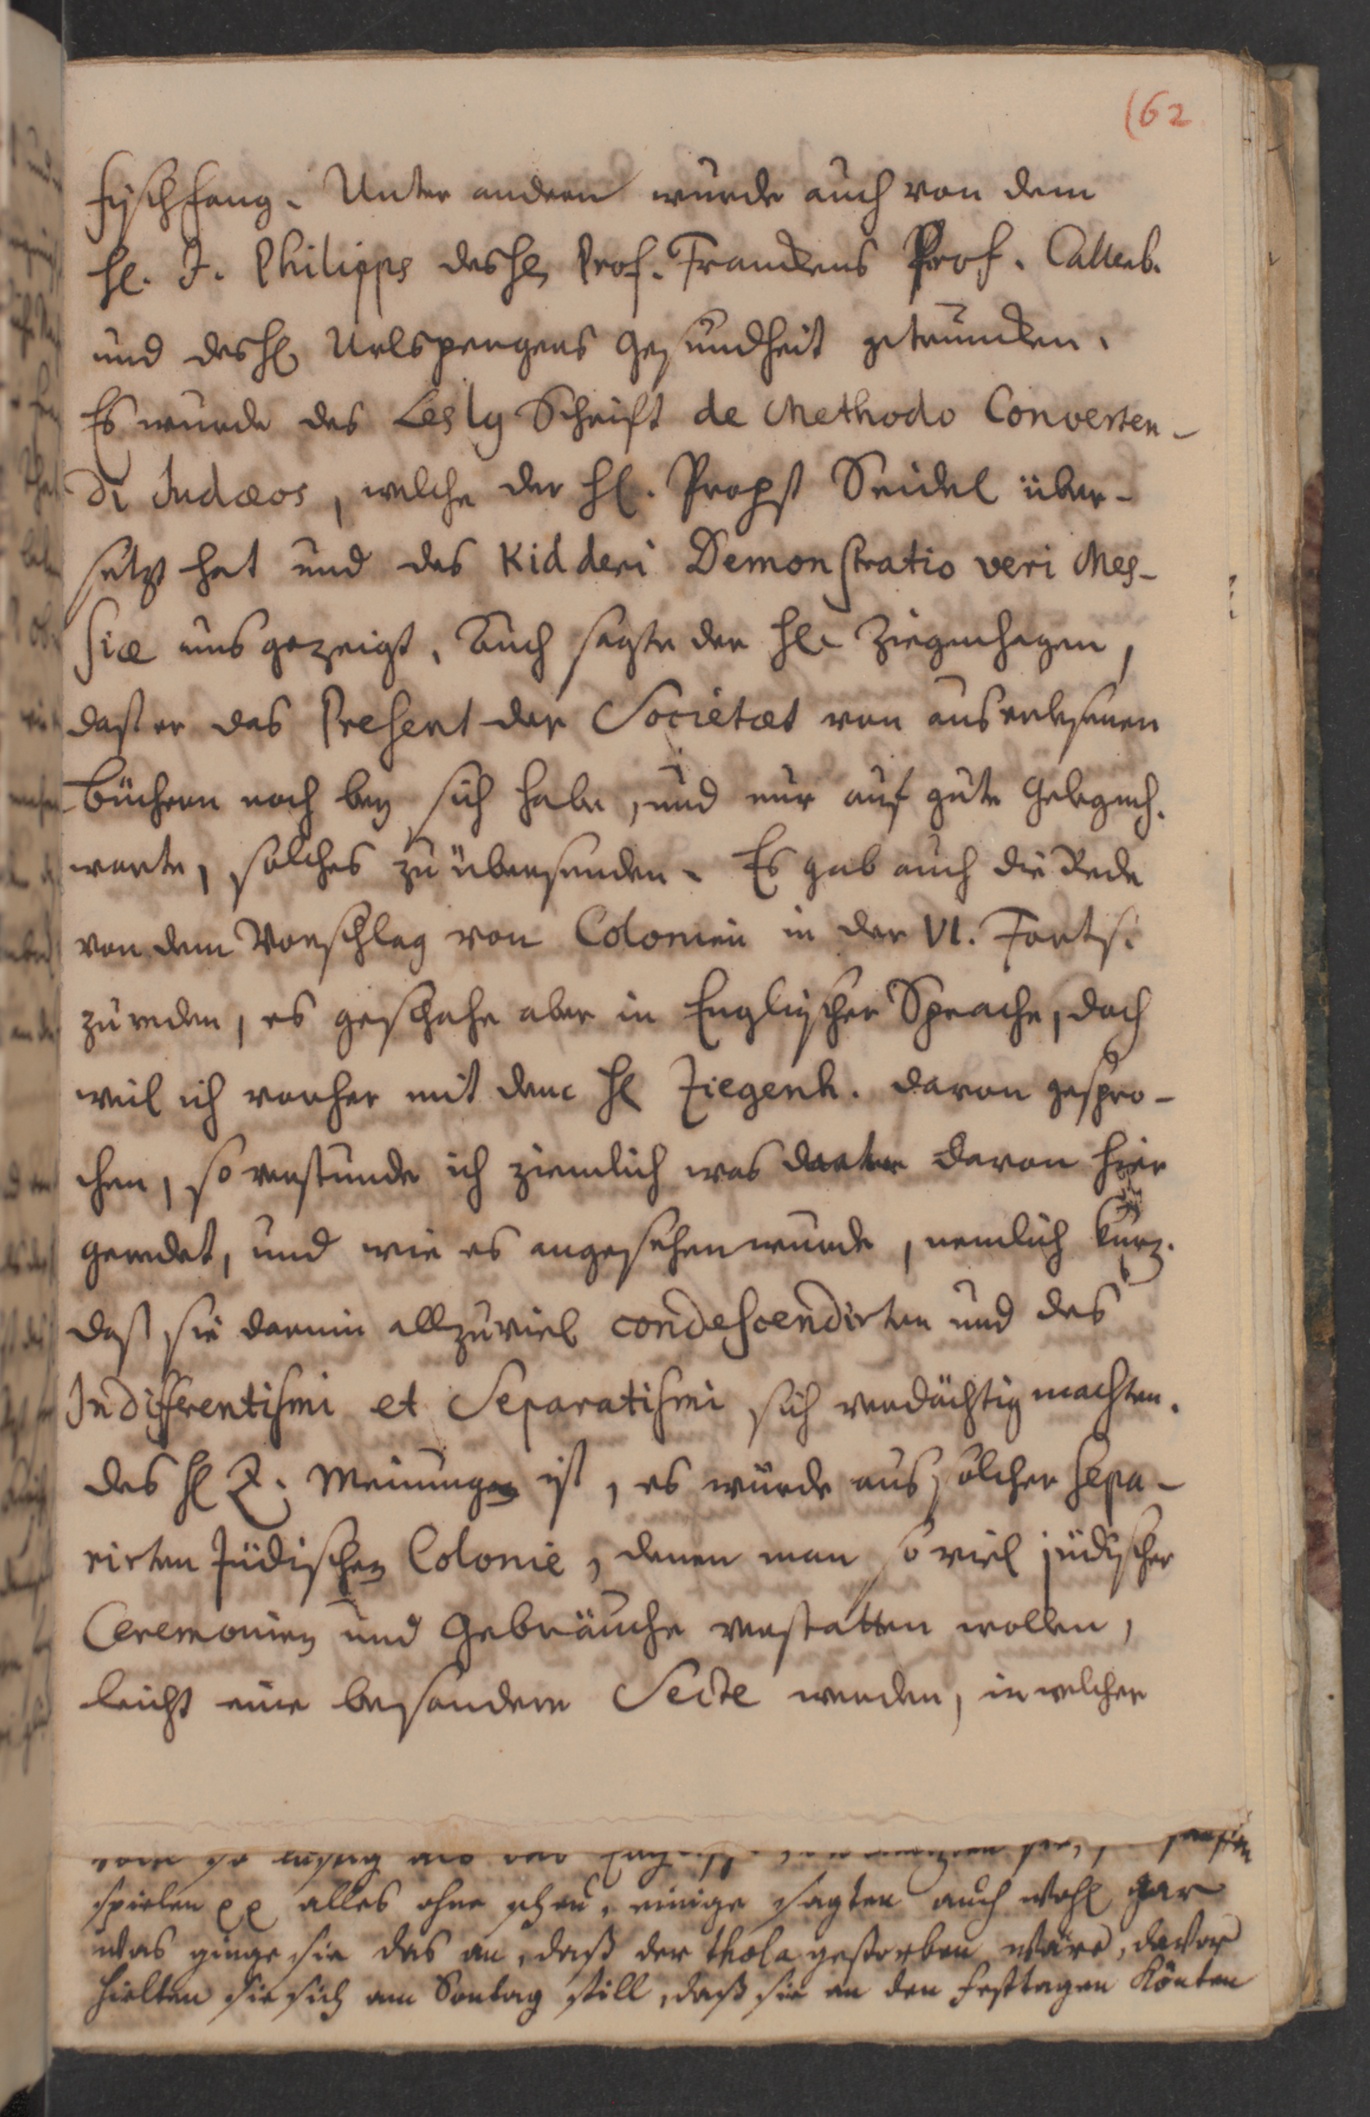 (62
fischfang. Unter andern wurde auch von dem
H. J. Philipps des H. Prof. Franckens Prof. Callenb.
und des H. Urlspergers Gesundheit getruncken.
Es wurde des Lesly Schrift de Methodo Converten-
di Judæos, welche der H. Propst Seidel über-
setzt hat und des Kidderi Demonstratio veri Mes-
siæ uns gezeigt. Auch sagte der H. Ziegenhagen,
daß er das Present der Societæt von auserlesenen
Büchern noch bey sich habe, und nur auf gute Gelegenh.
warte, solches zu übersenden. Es gab auch die Rede
von dem Vorschlag von Colonien in der VI. Forts.
zu reden, es geschahe aber in Englischer Sprache, doch
weil ich vorher mit dem H Ziegenh. davon gespro-
chen, so verstunde ich ziemlich was davon hier
geredet, und wie es angesehen wurde, nemlich kurz.
daß sie darin allzuviel condescendirten und des
Indifferentismi et Separatismi sich verdächtig machten.
Des H Z. Meinung ist, es würde aus solcher sepa-
rirten Jüdischen Colonie, denen man so viel jüdischer
Ceremonien und Gebräuche verstatten wollen,
leicht eine besondere Secte werden, in welcher
spielen alles ohne scheu, einige sagten auch wohl gar
was ginge sie das an, daß der thola gestorben wäre, davor
hielten sie sich am Sontag still, daß sie an den festtagen könten